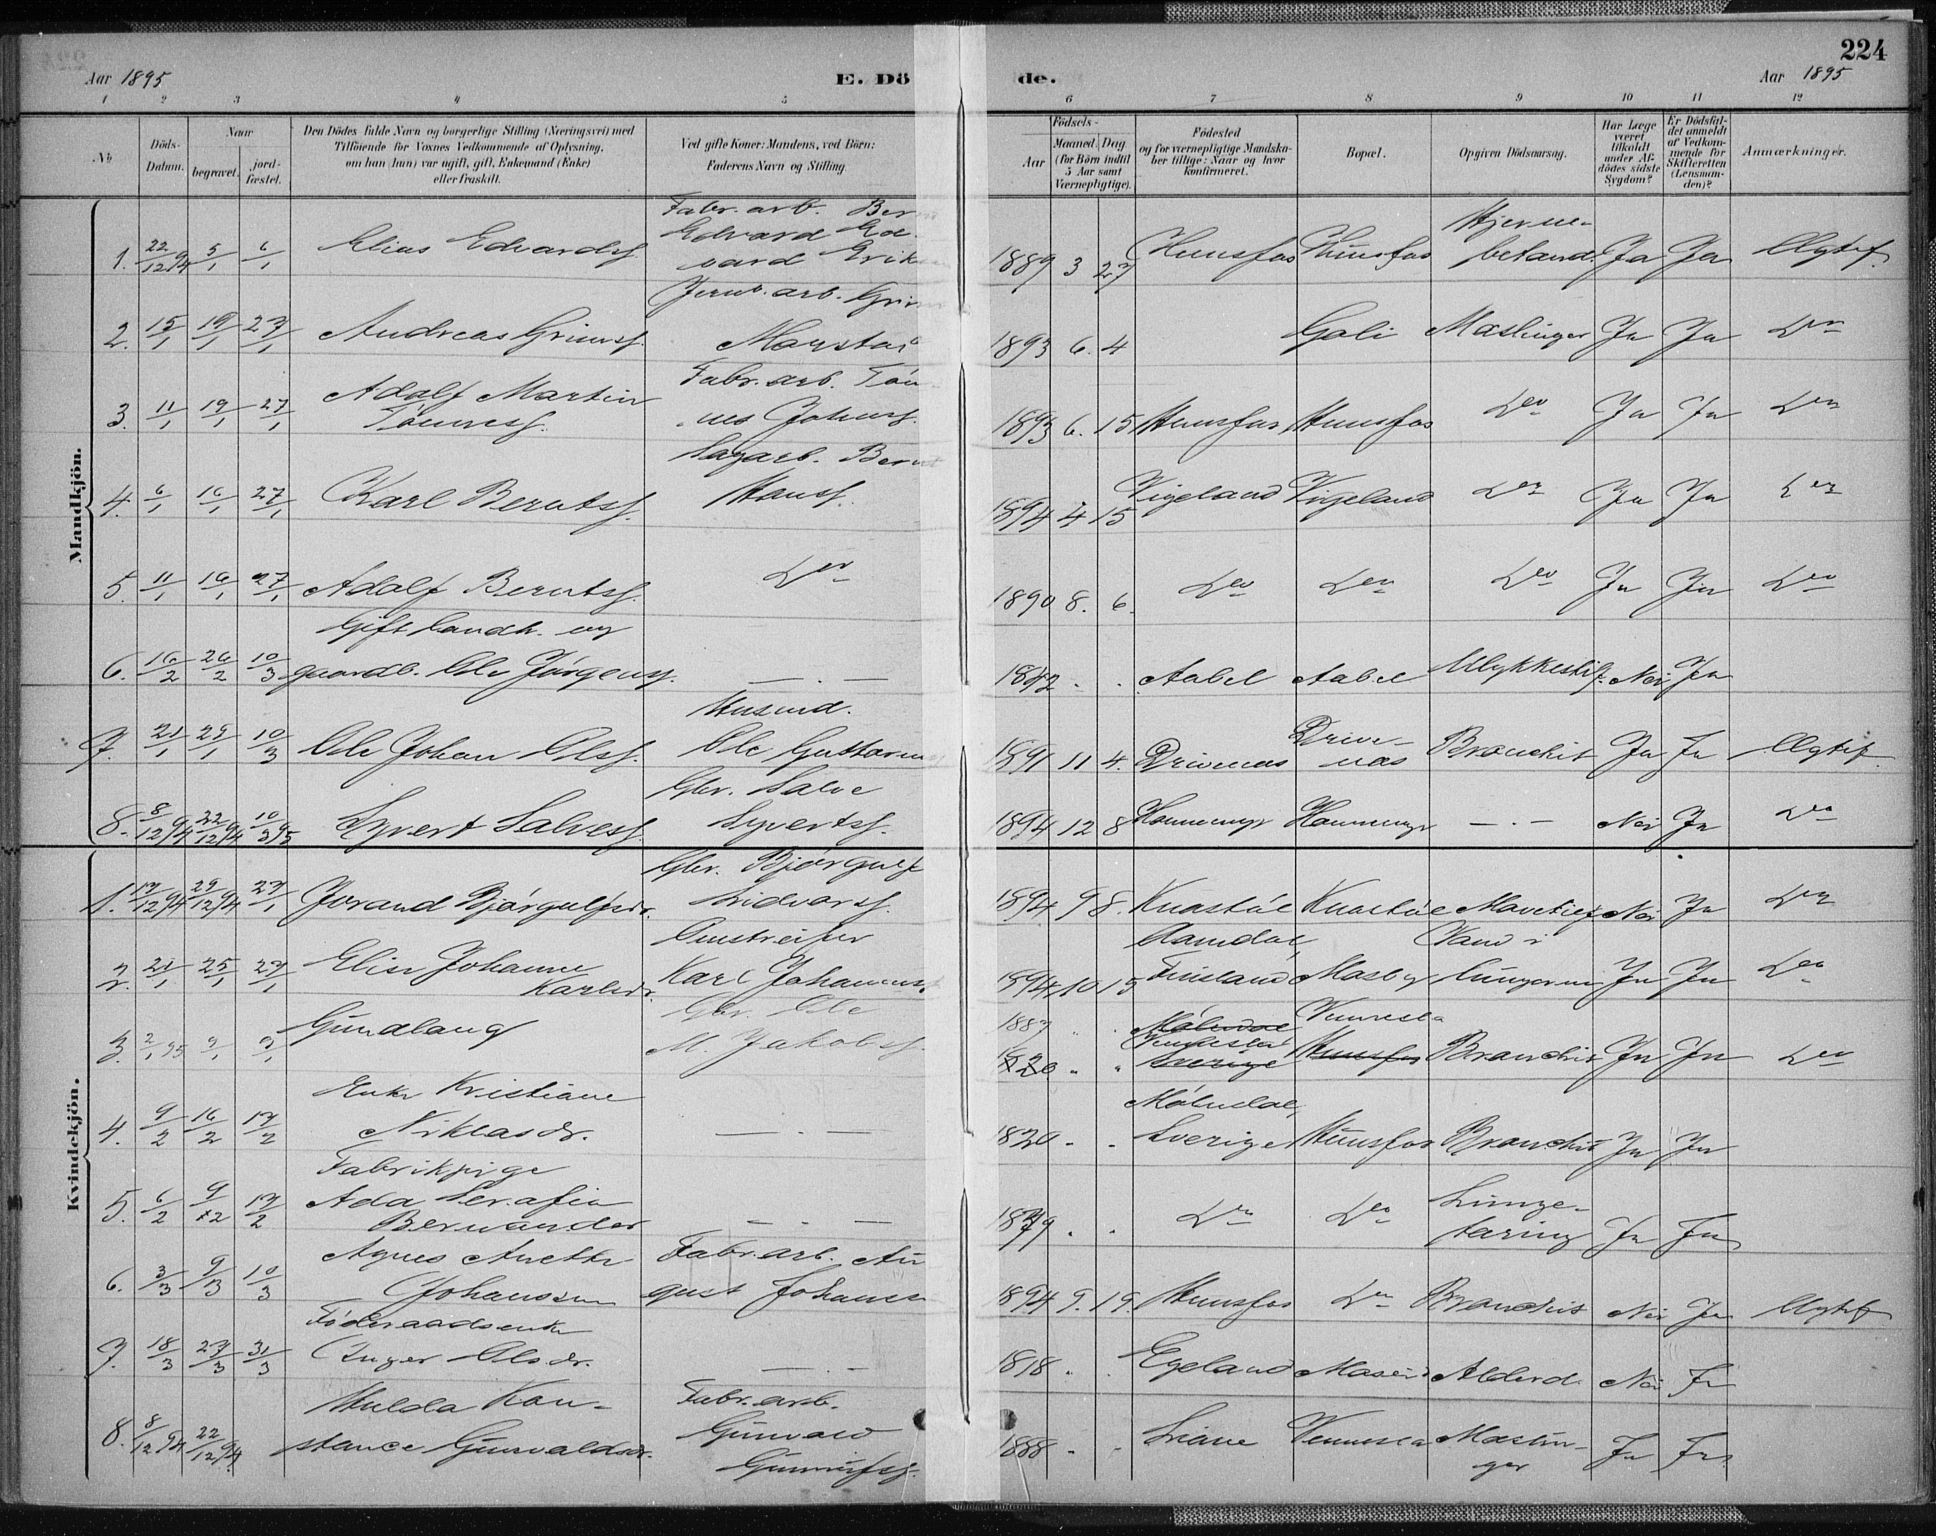 224
Aar 1895 E. Dö de. Aar 1895
1 2 3 4 5 6 7 8 9 10 11 12
No
Döds-Datum.
Naar
begravet.
jord-fæstet.
Den Dödes fulde Navn og borgerlige Stilling (Næringsvei) med
Tilföiende for Voxnes Vedkommende af Oplysning,
om han (hun) var ugift, gift, Enkemand (Enke)
eller fraskilt.
Ved gifte Koner: Mandens, ved Börn:
Faderens Navn og Stilling.
Födsels-
Aar
Maaned Dag
(for Börn indtil
5 Aar samt
Værnepligtige).
Födested
og for værnepligtige Mandska-
ber tillige: Naar og hvor
konfirmeret.
Bopæl.
Opgiven Dödsaarsag.
Har Læge
været
tilkaldt
under Af-
dödes sidste
Sygdom?
Er Dödsfal-
det anmeldt
af Vedkom-
mende for
Skifteretten
(Lensman-
den)?
Anmærkninger.
Mandkjön.
Fabr. arb. Ber
Edvard Ed-
1. 22/12 94 5/1 6/1 Elias Edvards. vard Erik 1889 3 27 Hunsfos Hunsfos Hjerne-
betænd. Ja Ja Ægtef.
Jernb. arb. Grim
2. 15/1 19/1 27/1 Andreas Grimsf. 1893 6. 4 Mæslinger Ja Ja Do
Fabr. arb. Tön
3. 11/1 19/1 27/1 Adolf Martin
Tönnesf. nes Johnsf. 1893 6. 15 Hunsfos Hunsfos Do Ja Ja Do
Sagarb. Bernt
4. 6/1 16/1 27/1 Karl Berntsf. Hansf. 1894 4 15 Vigeland Vigeland Do Ja Ja Do
5. 11/1 16/1 27/1 Adolf Berntsf. Do 1890 8. 6. Do Do Do Ja Ja Do
Gift Landh. og
6. 16/2 26/2 10/3 gaardb. Ole Jörgensf. — . — 1842 . . Aabel Aabel Ulykkestilf. Nei Ja
Husmd.
7. 21/1 29/1 10/3 Ole Johan Olsf. Ole Guttorm 1891 11 4. Drivenæs Drive-
næs Bronchit Ja Ja Ægtef.
Gbr. Salve
8. 8/12 94 22/12 94 10/3 95 Syvert Salvesf. Syvertsf. 1894 12 8 Hommemyr Hommemyr — . — Nei Ja Do
Kvindekjön.
Gbr. Björgulf
1. 17/12 94 29/12 94 27/1 Jorand Björgulfsdr. 1894 9 8. Knastöl Knastöl Nei Ja Do
2. 21/1 25/1 27/1 Elise Johanne
Karlsdr. Karl Johannes 1894 10 15 Finsland Mosby Vand i
Lungerne Ja Ja Do
Gbr. Ole
3. 2/1 95 9/1 Gundlaug M. Jakobsf. 1887 . . Mölndal Vennesla
1820 . . Vennesla
Sverige Hunsfos Bronchit Ja Ja Do
Enke Kristiane
4. 9/2 16/2 17/2 Niklasdr. — . — 1820 . . Mölndal,
Sverige Hunsfos Bronchit Ja Ja
Fabrikpige
5. 6/2 9/2 17/2 Ada Serafia
Bernander — . — 1879 . . Do Do Lunge-
tæring Ja Ja
Agnes Anette
6. 3/3 9/3 10/3 Johanssen Fabr. arb. Au
gust Johans 1894 9. 19. Hunsfos Do Bronchit Nei Ja Ægtef
Föderaadsenke
7. 18/3 23/3 31/3 Inger Olsdr. — . — 1818 . . Egeland Alderd. Nei Ja
Hulda Kon-
8. 8/12 94 22/12 94 stance Gunvaldsdr. Fabr. arb.
Gunvald
Gunnufsf. 1888 . . Vennesla Mæslin-
ger Ja Ja